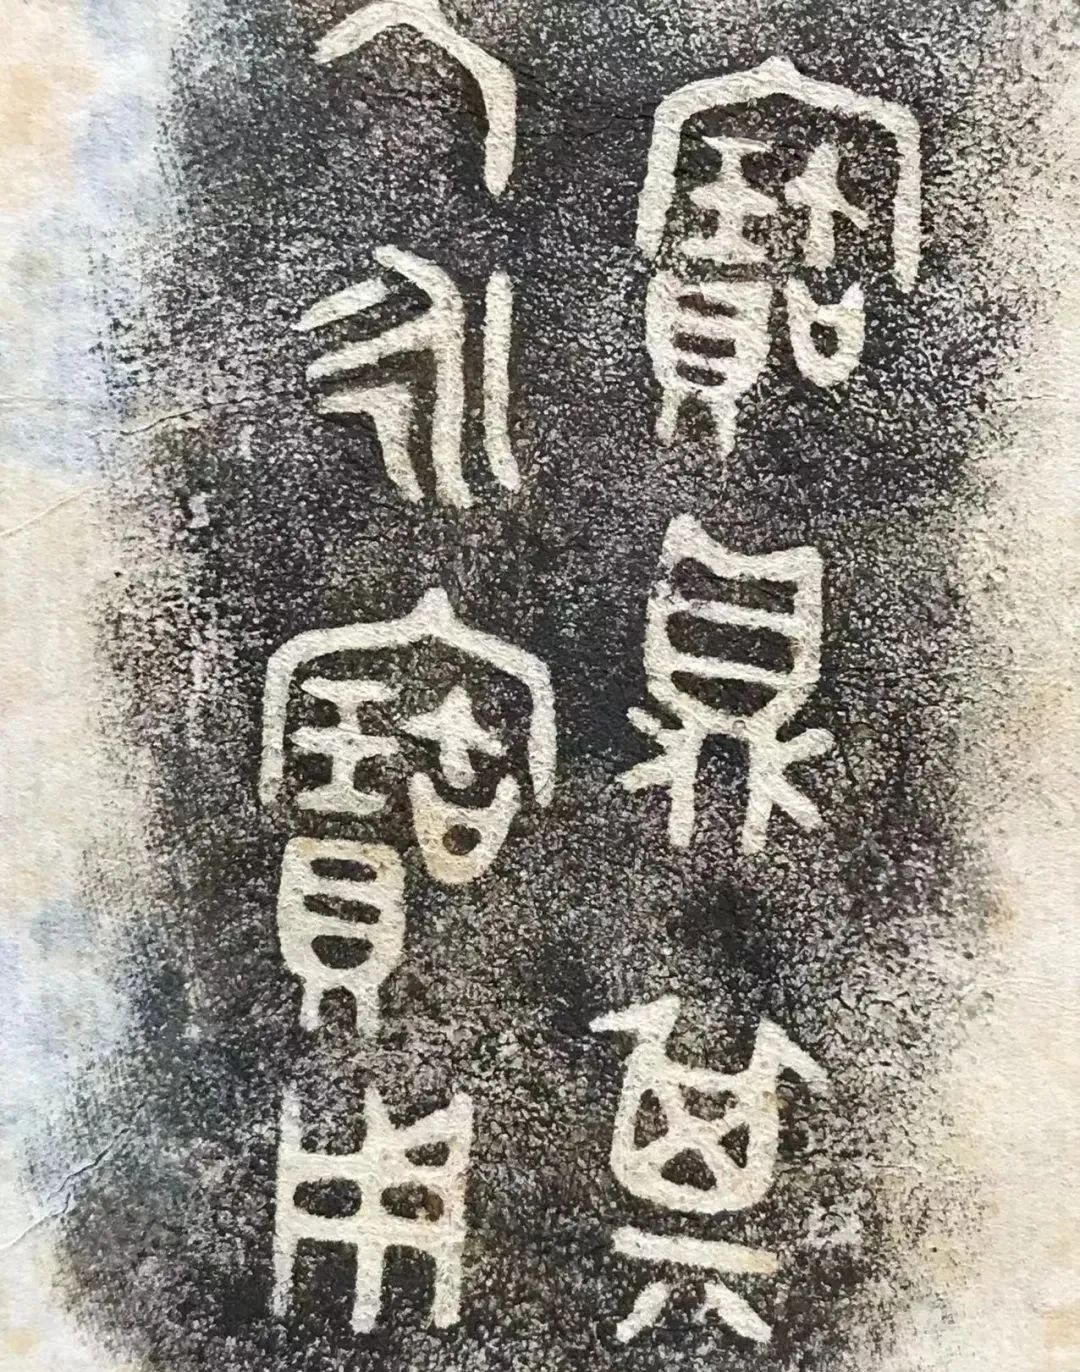 寶鼎其
永寶用